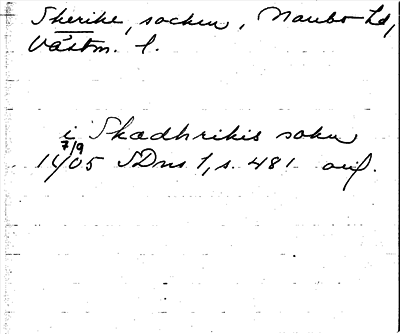 Skerike, socken, Norrbo hd,
Västm. l.
i Skadhrikis sokn
7/9
1405 SDns 1, s. 481 avs.